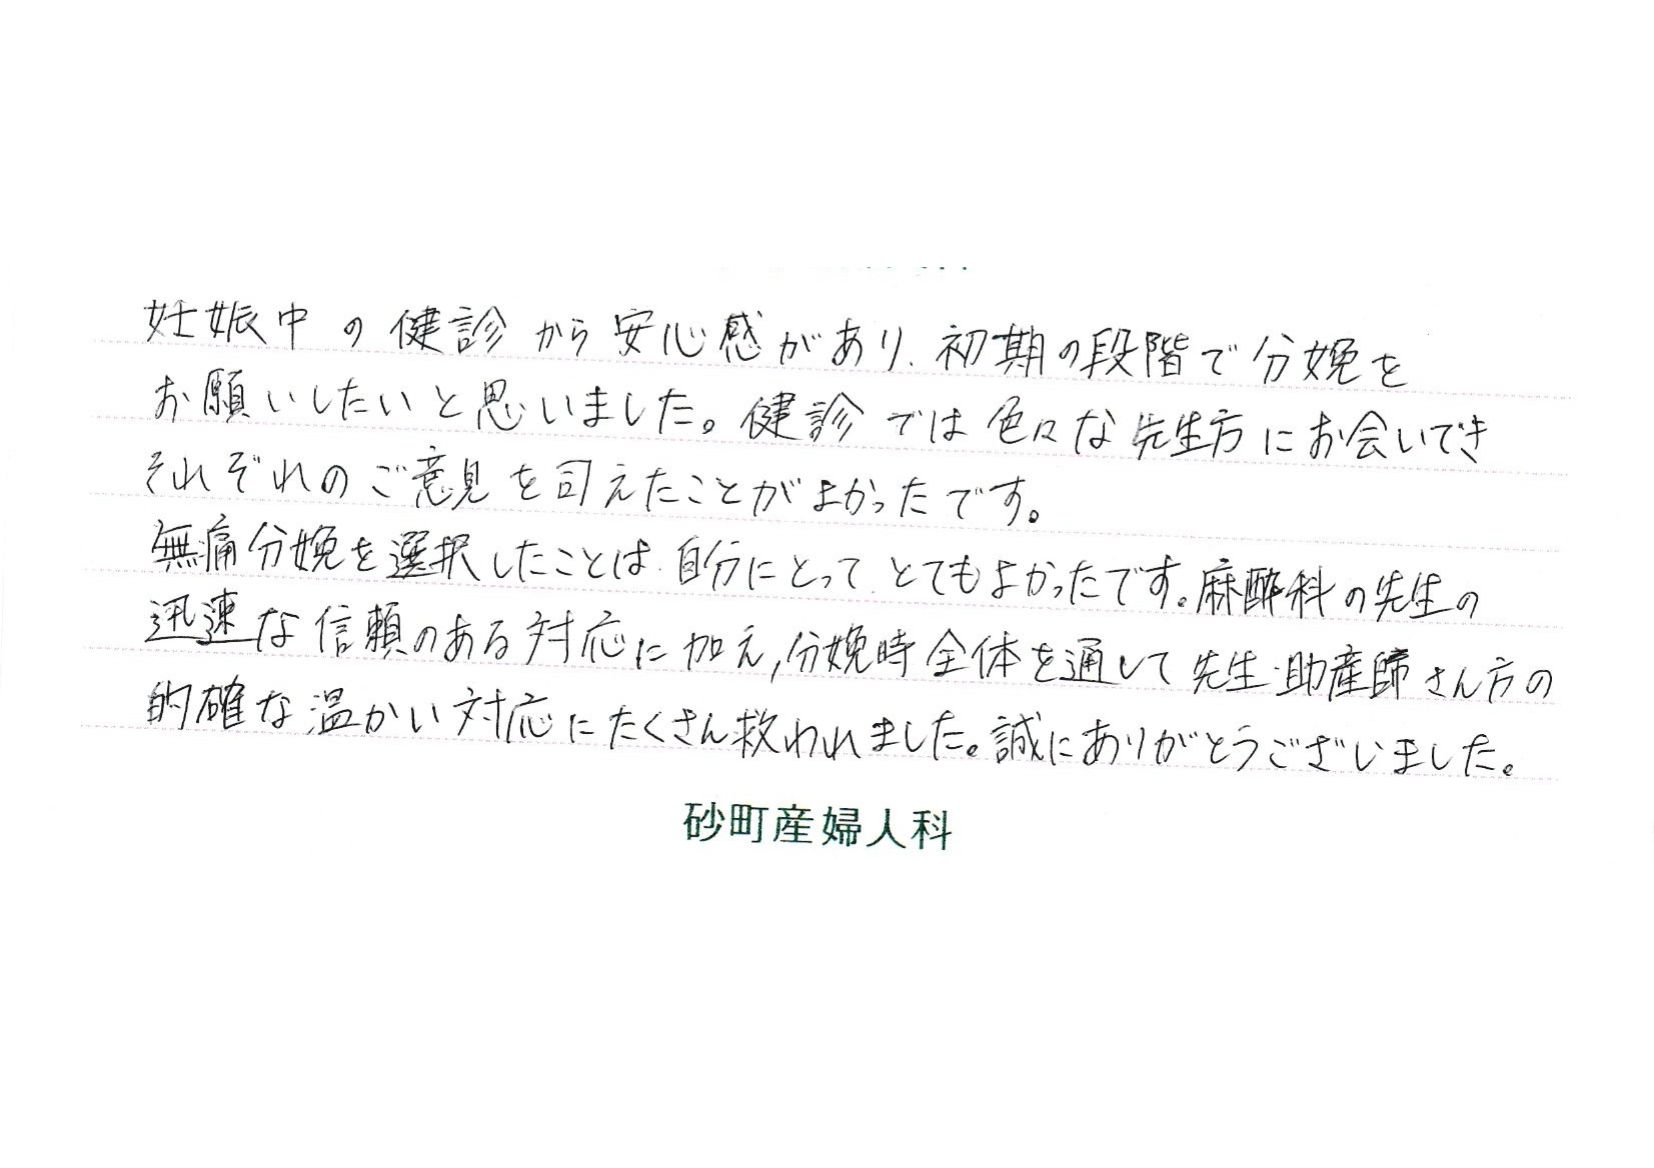 妊娠中の健診から安心感があり、初期の段階で分娩を
お願いしたいと思いました。健診では色々な先生方にお会いでき
それぞれのご意見を司えたことがよかったです。
無痛分娩を選択したことは、自分にとって、とてもよかったです。麻酔科の先生の
迅速な信頼のある対応に加え,分娩時全体を通して先生・助産師さん方の
的確な温かい対応にたくさん救われました。誠にありがとうございました。
砂町産婦人科